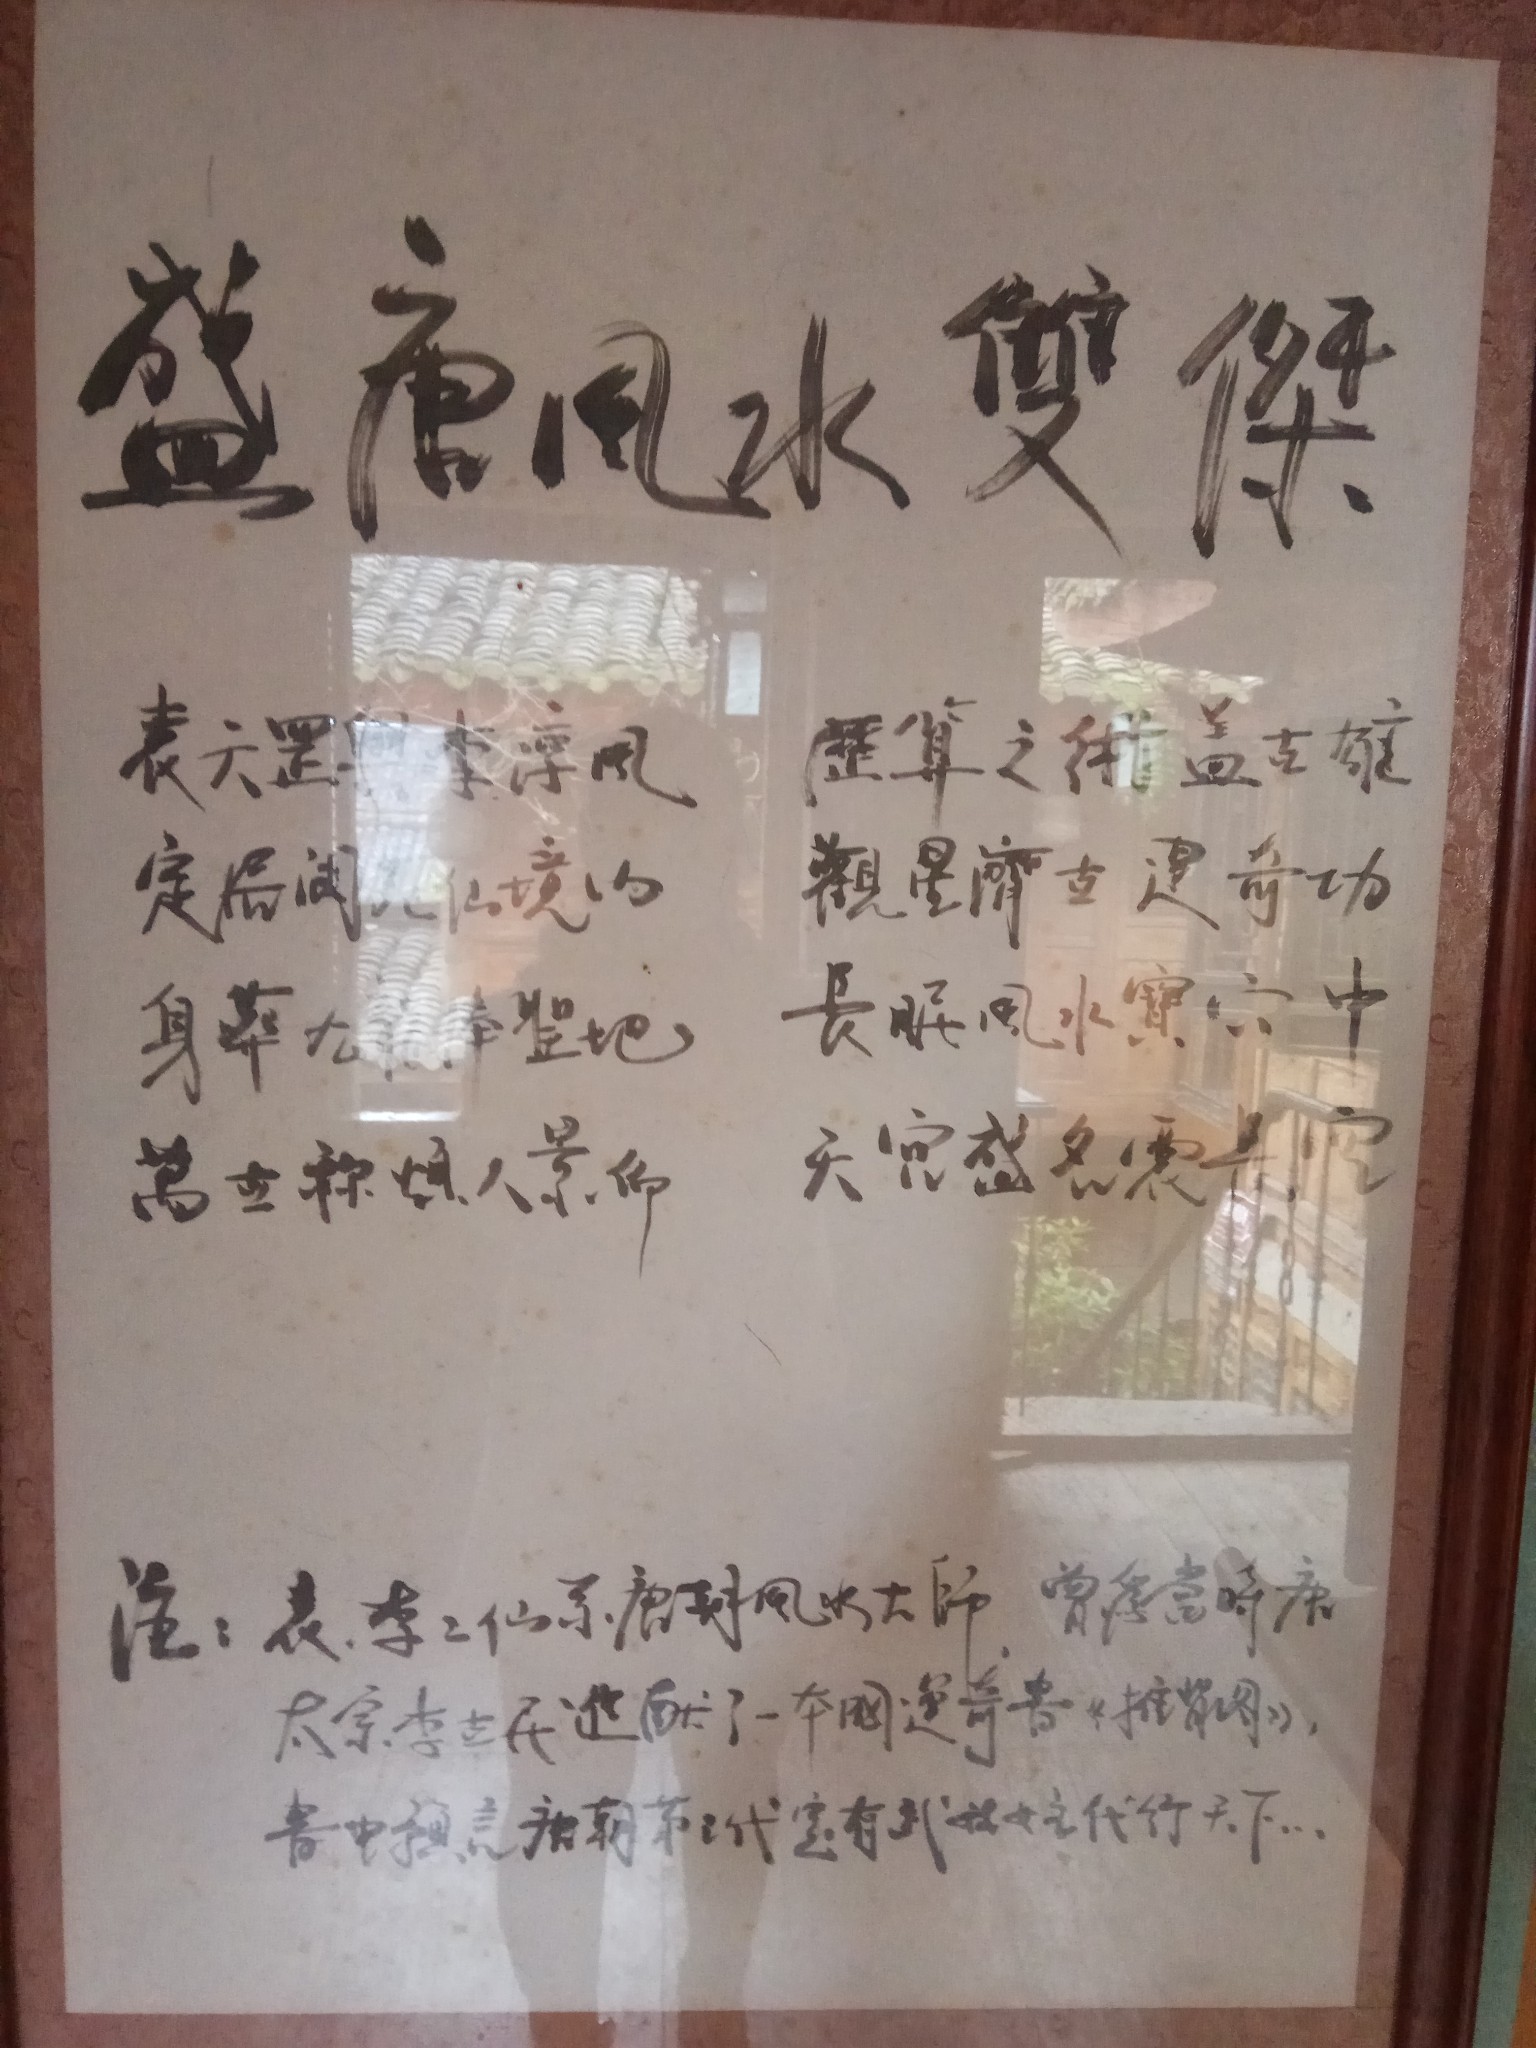 盛唐風水雙傑
袁天罡與李淳風 歷算之術蓋古雄
定居閬苑仙境内 觀星濟世建奇功
身葬九龍捧聖地 長眠風水寶穴中
萬世稱頌人景仰 天宮盛名震長空
注：袁、李二仙系唐朝風水大師，曾經當時唐
太宗李世民進献了一本國運奇書《推背图》，
書中預言唐朝第三代定有武姓女主代行天下…